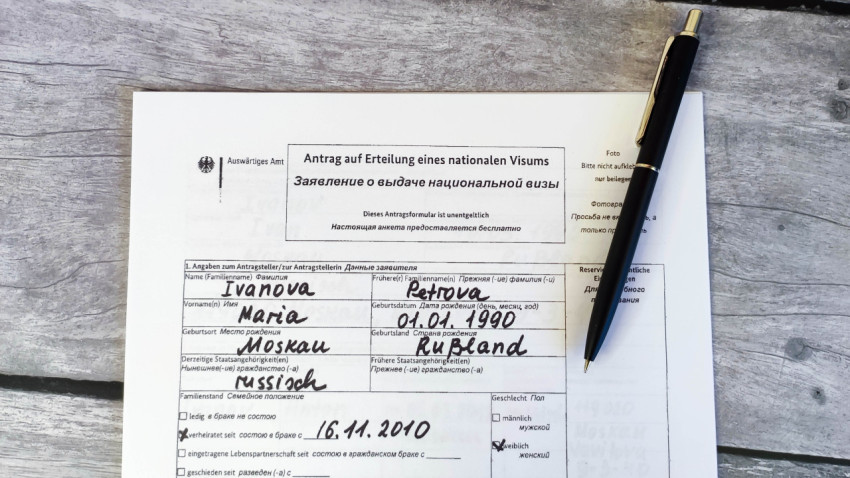 Auswärtiges Amt
Antrag auf Erteilung eines nationalen Visums
Заявление о выдаче национальной визы
Dieses Antragsformular ist unentgeltlich
Настоящая анкета предоставляется бесплатно
Foto
Bitte nicht aufkleb
nur beilegen
Фотогра
Просьба не а
только пр
1. Angaben zum Antragsteller/zur Antragstellerin Данные заявителя
Name (Familienname) Фамилия
Ivanova
Frühere(r) Familienname(n) Прежняя (-ие) фамилия (-и)
Petrova
Reservie tliche
Ein gen
Для бного
п вания
Vorname(n) Имя
Maria
Geburtsdatum Дата рождения (день, месяц, год)
01.01.1990
Geburtsort Место рождения
Moskau
Geburtsland Страна рождения
Rußland
Derzeitige Staatsangehörigkeit(en)
Нынешнее(-ие) гражданство (-а)
russisch
Frühere Staatsangehörigkeit(en)
Прежнее (-ие) гражданство (-а)
Familienstand Семейное положение
ledig в браке не состою
verheiratet seit состою в браке с 16.11.2010
eingetragene Lebenspartnerschaft seit состою в гражданском браке с
geschieden seit разведен (-а) с
Geschlecht Пол
männlich
мужской
weiblich
женский